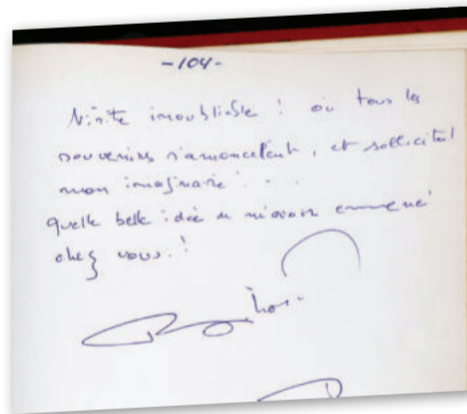 -104-
Visite inoubliable ! où tous les
souvenirs s'amoncellent, et sollicitent
mon imaginaire . . .
quelle belle idée de m'avoir emmené
chez vous. !